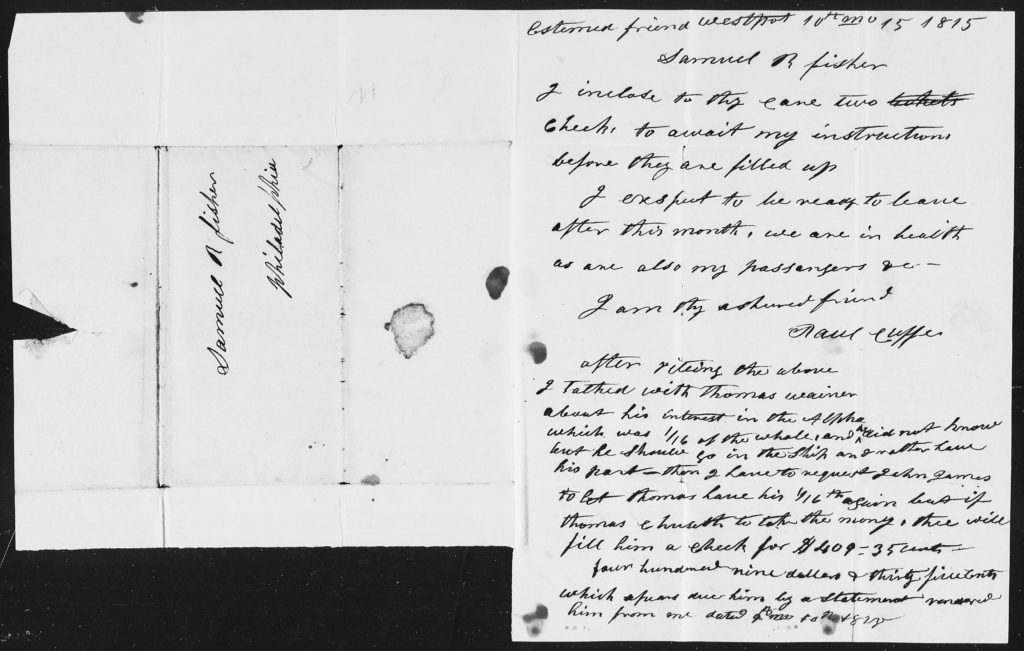 Samuel R fisher
philadelphia
Estemed friend Westport 10th mo 15 1815
Samuel R fisher
I inclose to thy care two tickets
Checks to await my instructions
before they are filled up
I exsput to be ready to leave
after this month, we are in health
as are also my passengers &c —
I am thy ashured friend
Paul Cuffe
after riteing the above
I talked with thomas wainer
about his interest in the Alpha
which was 1/16 of the whole, and he did not know
but he should go in the Ship and rather have
his part = then I have to request John James
to let thomas have his 1/16th again but if
thomas to take the money, thee will
fill him a check for $409=35 cents —
four hundred nine dollars & thirty five cents
which apears due him by a statement rendered
him from me dated mo 10th